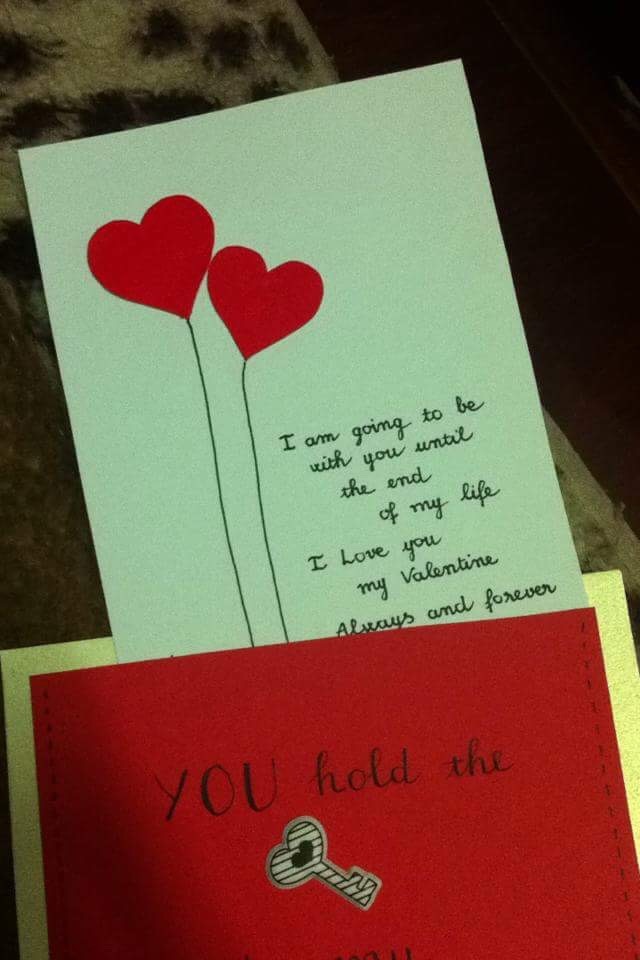 I am going to be
with you until
the end
of my life
I Love you
my Valentine
Always and forever
YOU hold the